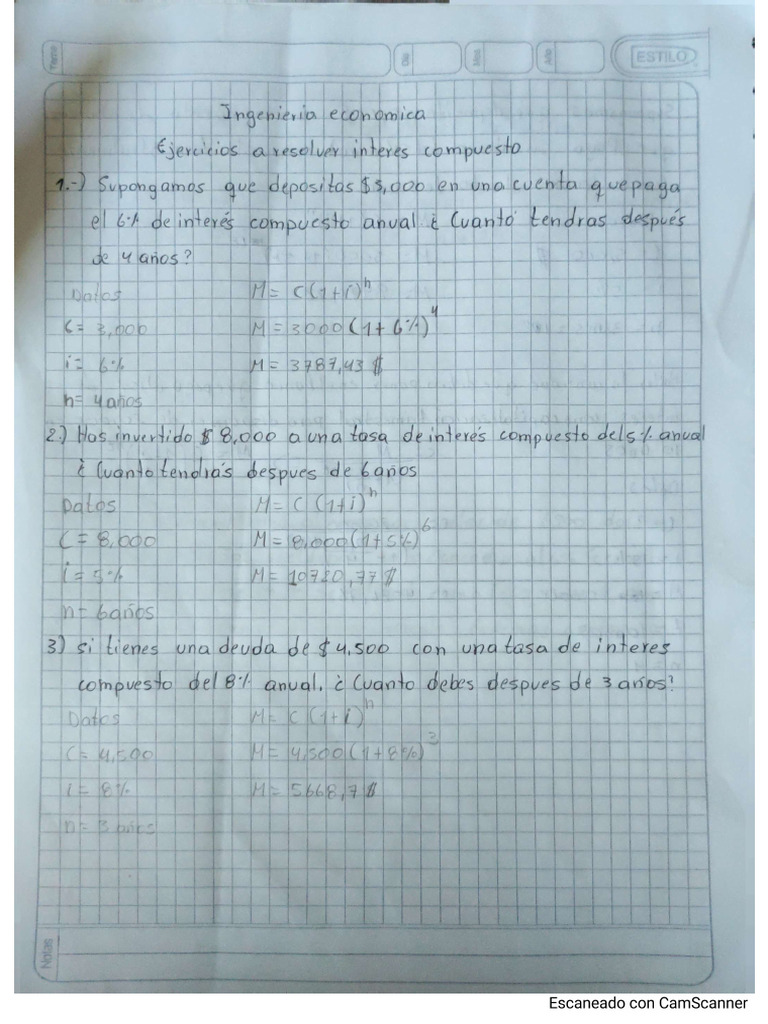 Tema
Dia
Mes
Año
ESTILO
Ingenieria economica
Ejercicios a resolver interes compuesto
1.-) Supongamos que depositas $3,000 en una cuenta que paga
el 6% de interés compuesto anual ¿Cuanto tendras después
de 4 años?
Datos
M= C(1+i)^n
C= 3,000
M= 3000(1+6%)^4
i= 6%
M= 3787,43 $
n= 4 años
2.) Has invertido $ 8,000 a una tasa de interés compuesto del 5% anual
¿Cuanto tendrás despues de 6 años
Datos
M= C (1+i)^n
C= 8,000
M= 8,000(1+5%)^6
i= 5%
M= 10720,77$
n= 6 años
3) si tienes una deuda de $4,500 con una tasa de interes
compuesto del 8% anual. ¿Cuanto debes despues de 3 años?
Datos
M= C (1+i)^n
C= 4,500
M= 4,500(1+8%)^3
i= 8%
M= 5668,7$
n= 3 años
Notas
Escaneado con CamScanner